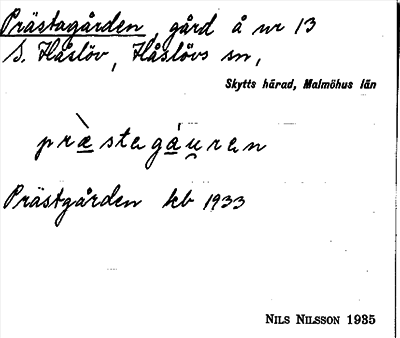 Prästagården, gård å nr 13
S. Håslöv, Håslövs sn,
Skytts härad, Malmöhus län
præ̀stagáu̯ren
Prästgården kb 1933
NILS NILSSON 1935